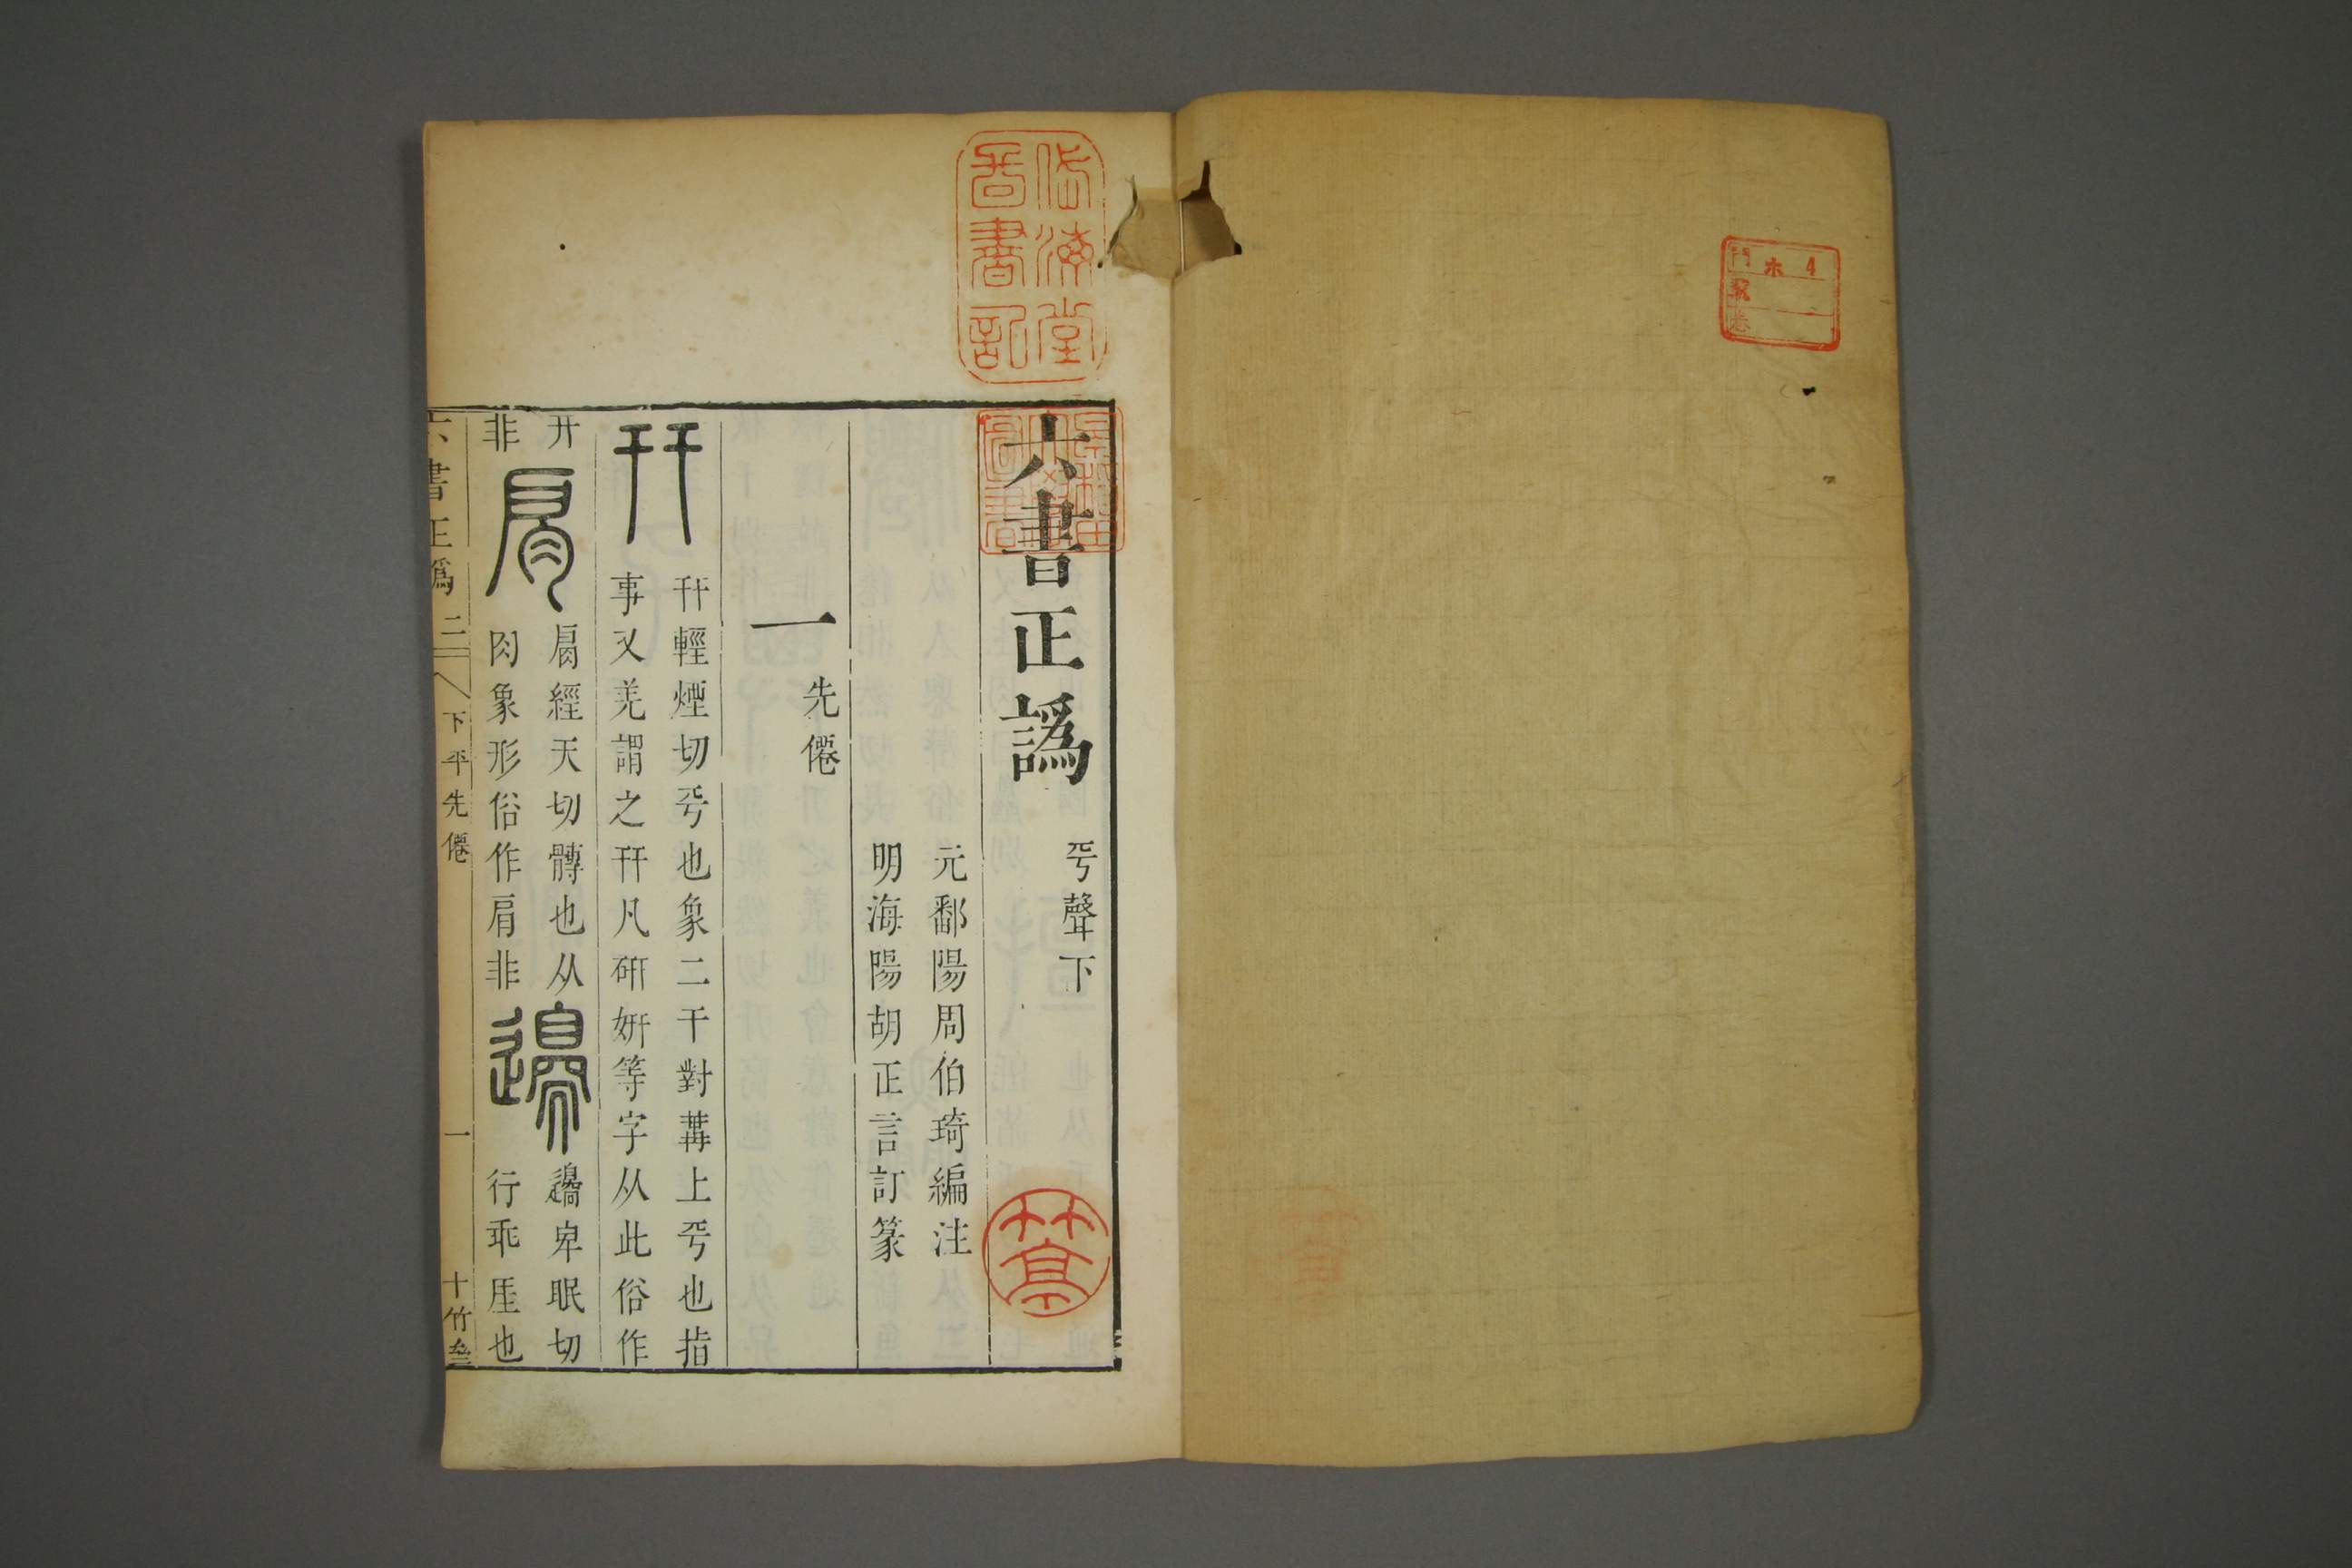 六書正譌 平聲下
元鄱陽周伯琦編注
明海陽胡正言訂篆
一 先僊
幵 幵輕煙切平也象二干對冓上平也指
事又羌謂之幵凡硏姸等字从此俗作
开非
肩 肩經天切髆也从
肉象形俗作肩非
邊 邊卑眠切
行乖厓也
六書正譌 二 下平先僊 一 十竹
飛青閣
門 木 4
號
卷